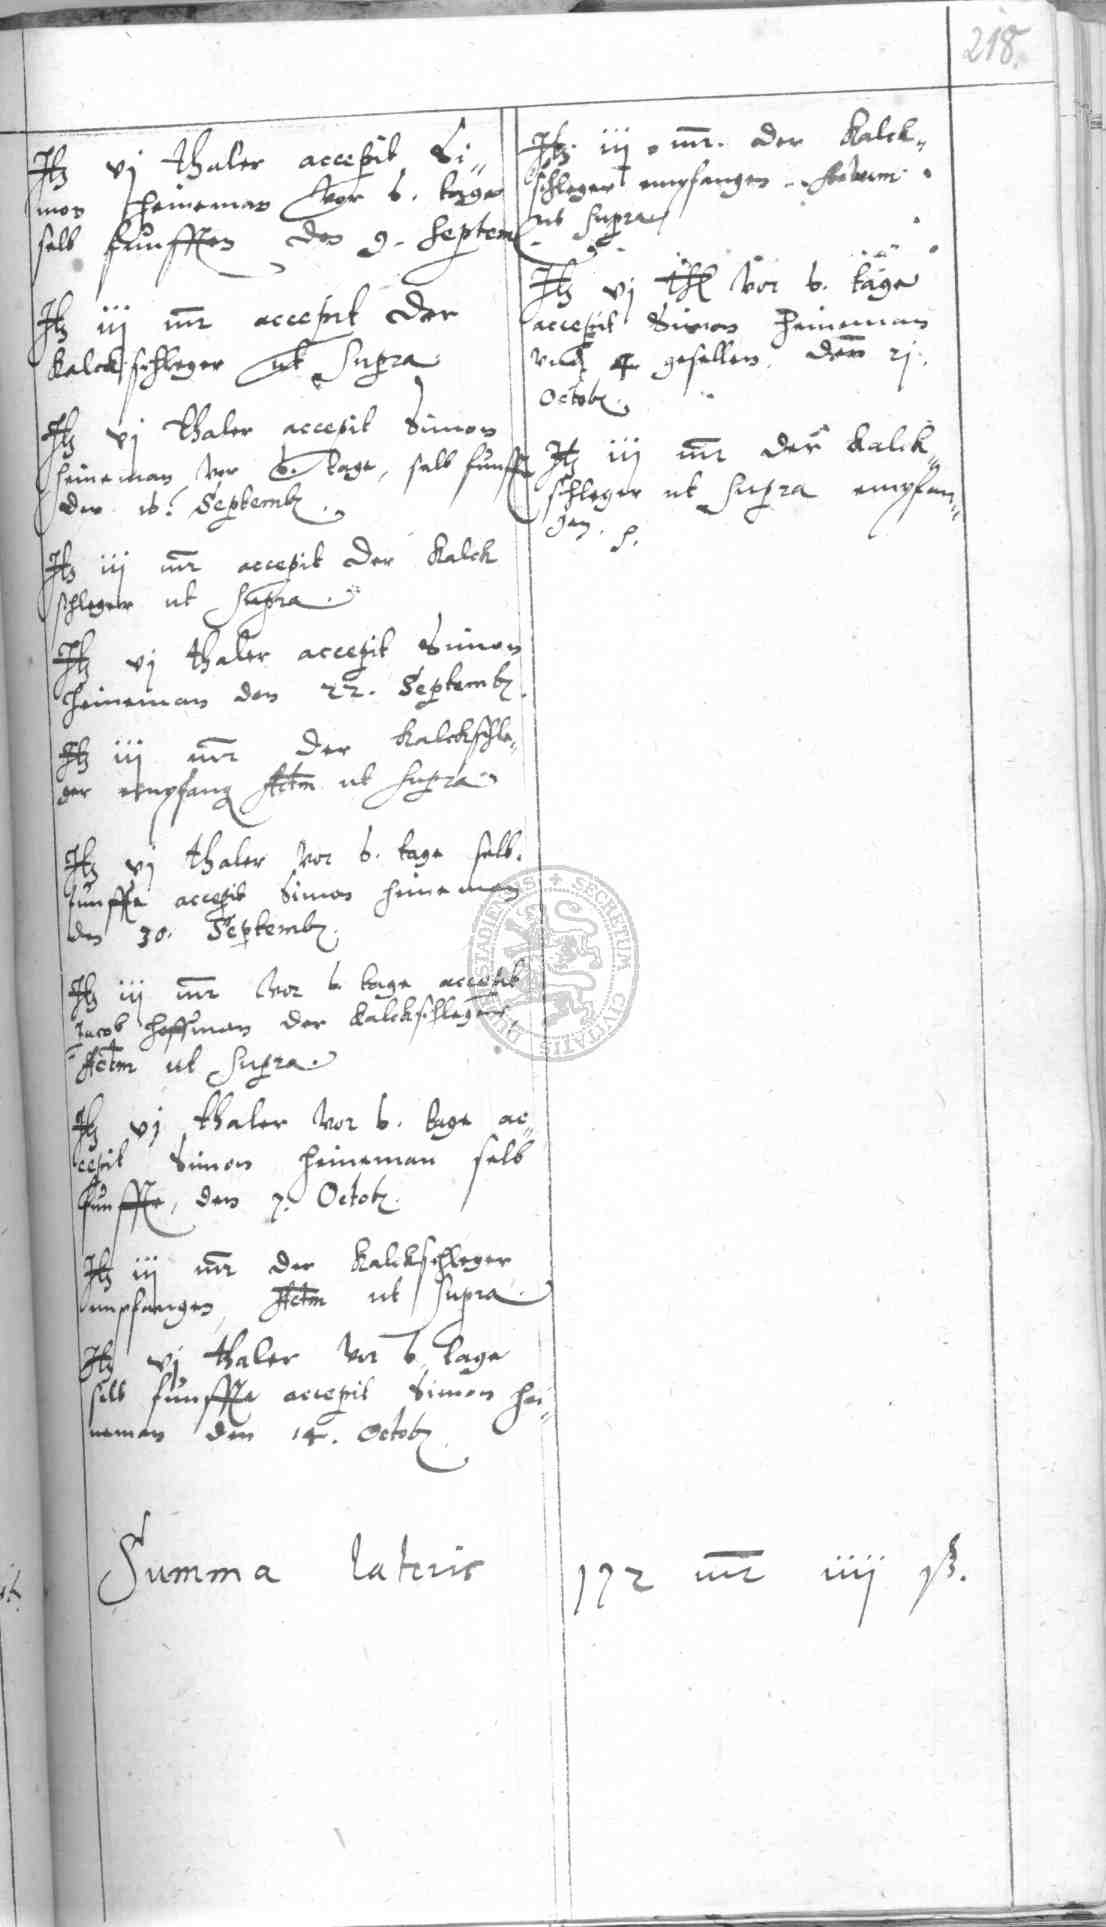 218.
Itz vj thaler accepit Si¬
mon Heineman vor 6. tage
selb funfften den 9. Septem
Itz iij mr accepit der
Kalckschleger ut supra
Itz vj thaler accepit Simon
Heineman, vor 6. tage, selb funfft
den 16. Septemb.
Itz iij mr accepit der Kalck
schleger ut supra.
Itz vj thaler accepit Simon
Heineman den 22. Septemb.
Itz iij mr der Kalckschle¬
ger empfang Actm ut supra
Itz vj thaler vor 6. tage selb.
funffte accepit Simon Heineman
den 30. Septemb.
Itz iij mr vor 6 tage accepit
Jacob Hoffman der Kalckschleger,
Actm ut supra.
Itz vj thaler vor 6. tage ac¬
cepit Simon Heineman selb
funffte, den 7. Octob.
Itz iij mr der Kalckschleger
empfangen, Actm ut supra.
Itz vj thaler vor 6 tage
selb funffte accepit Simon Hei¬
neman den 14. Octob.
Itz iij mr. der Kalck¬
schleger empfangen. Actum
ut supra
Itz vj thl vor 6. tage
accepit Simon Heineman
und 4 gesellen. den 21.
Octob.
Itz iij mr der Kalck¬
schleger ut supra empfan¬
gen.
Summa lateris 172 mr iiij ß.
SECRETUM CIVITATIS DUDERSTADIENSIS